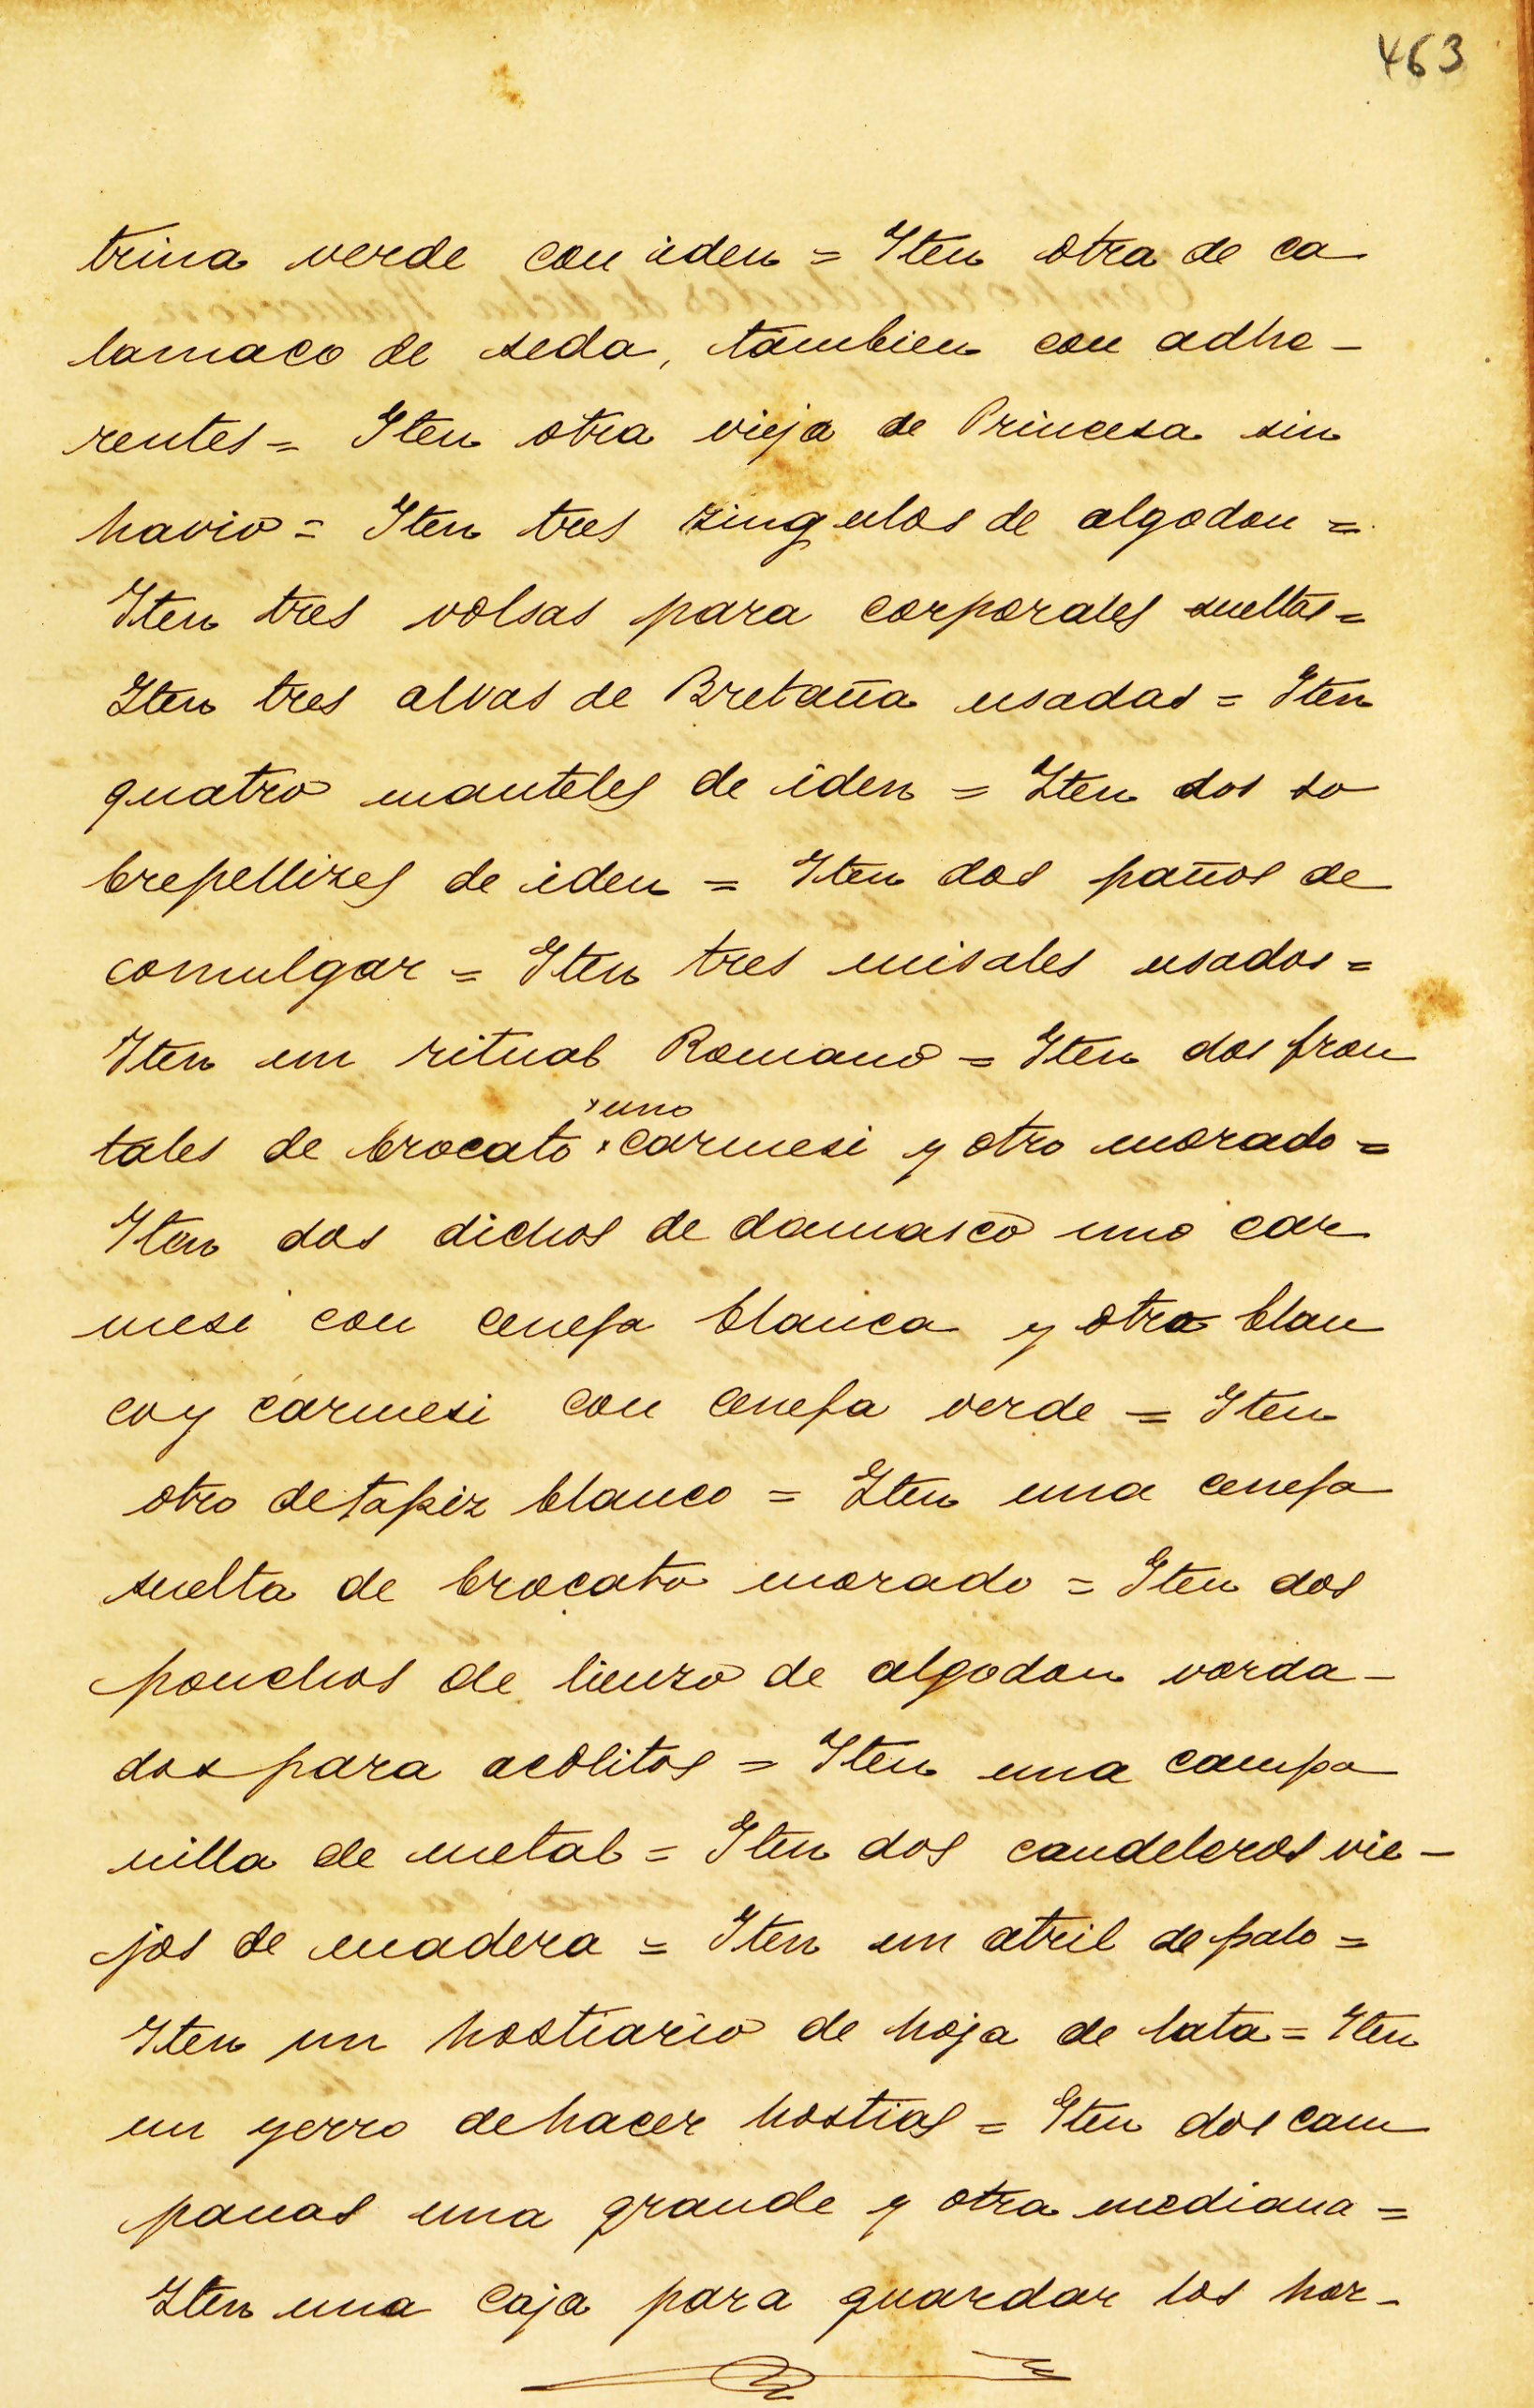 463
trina verde con iden = Iten otra de ca
lamaco de seda, tambien con adhe-
rentes = Iten otra vieja de Princesa sin
havio = Iten tres zingulos de algodon =
Iten tres volsas para corporales sueltas =
Iten tres alvas de Bretaña usadas = Iten
quatro manteles de iden = Iten dos so
brepellizes de iden = Iten dos paños de
comulgar = Iten tres misales usados =
Iten un ritual Romano = Iten dos fron
×uno
tales de brocato × carmesi y otro morado =
Iten dos dichos de damasco uno car
mesi con cenefa blanca y otro blan
co y carmesi con cenefa verde = Iten
otro de tapiz blanco = Iten una cenefa
suelta de brocato morado = Iten dos
ponchos de lienzo de algodon vorda-
dos para acolitos = Iten una campa
nilla de metal = Iten dos candeleros vie-
jos de madera = Iten un atril de palo =
Iten un hostiario de hoja de lata = Iten
un yerro de hacer hostias = Iten dos cam
panas una grande y otra mediana =
Iten una caja para guardar los hor-